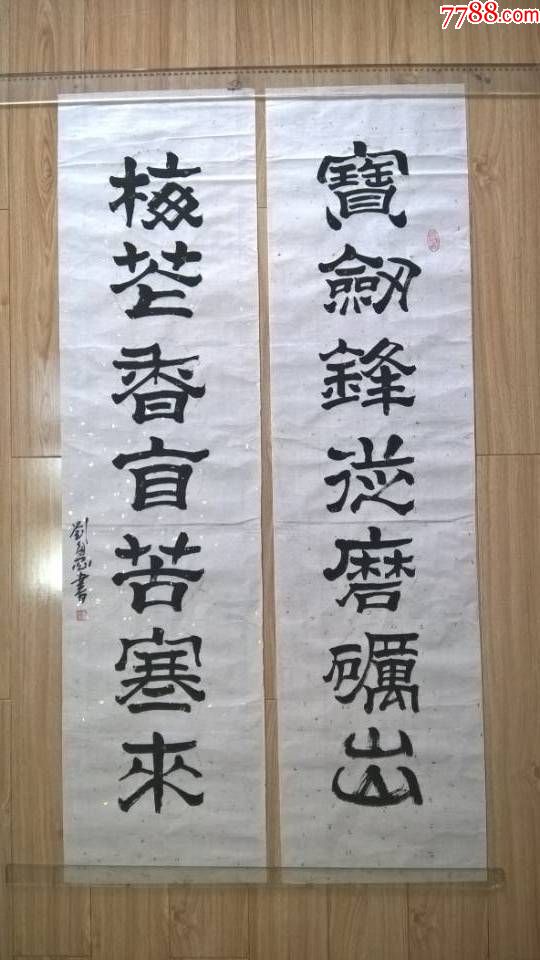 7788.com
寶劔鋒從磨礪出
梅花香自苦寒來
書